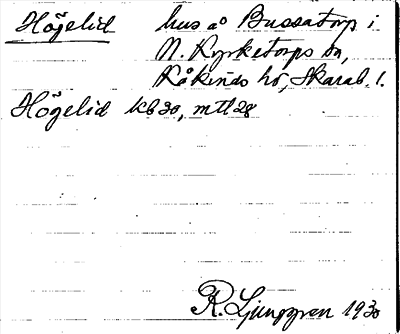 Högelid hus å Bussatorp i
N. Kyrketorps sn,
Kåkinds hd, Skarab. l.
Högelid kb 30, mtl 28
R. Ljunggren 1930